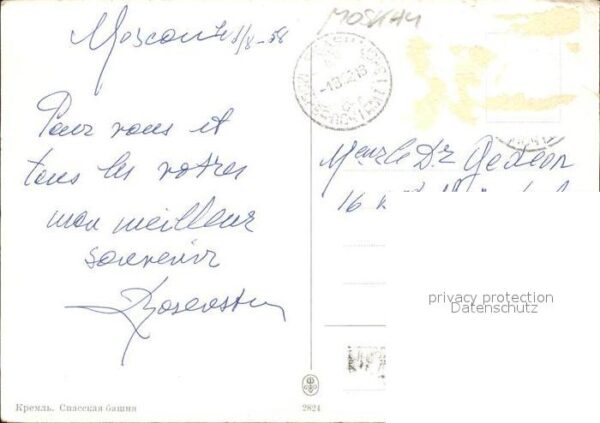 MOSKAU
Moscou le 1/8-58
Pour vous et
tous les vôtres
mon meilleur
souvenir
Meur le Dr Gedeon
16
privacy protection
Datenschutz
Кремль. Спасская башня
2824